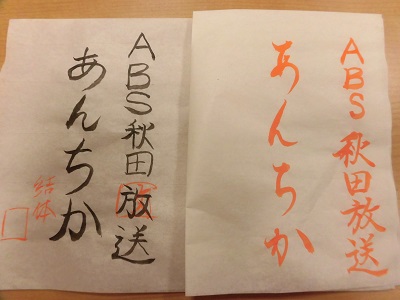 ABS秋田放送
あんちか
結体
ABS秋田放送
あんちか